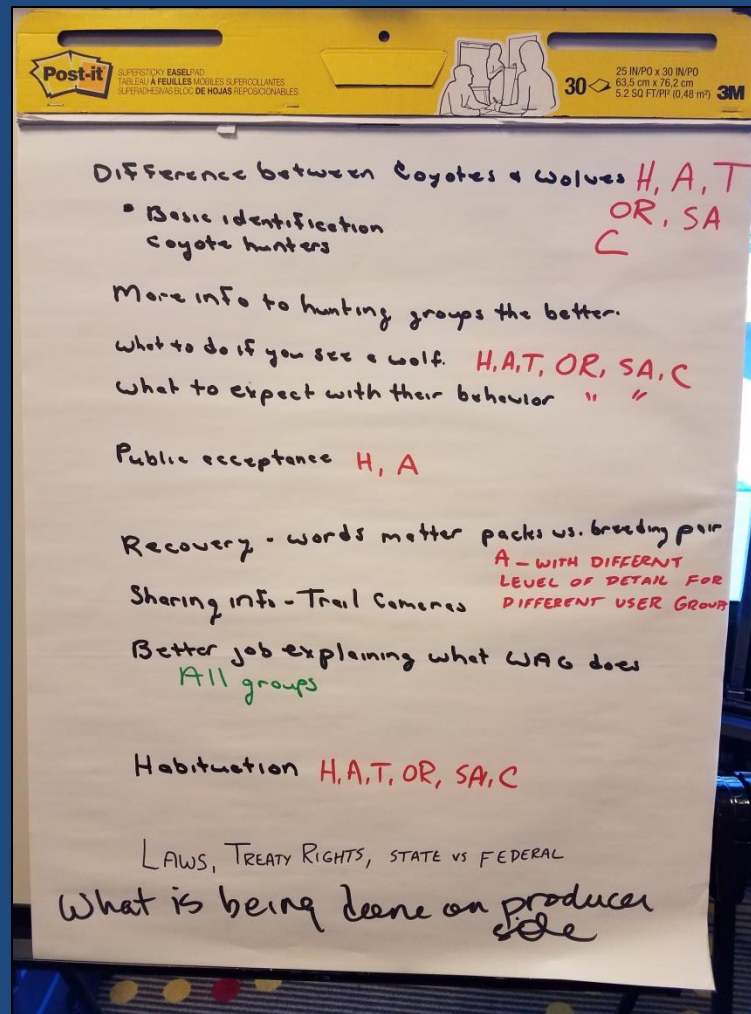 Post-it
SUPERSTICKY EASELPAD
TABLEAU À FEUILLES MOBILES SUPERCOLLANTES
SUPERADHESIVAS BLOC DE HOJAS REPOSICIONABLES
30
25 IN/PO x 30 IN/PO
63,5 cm x 76,2 cm
5.2 SQ FT/PI² (0,48 m²)
3M
Difference between Coyotes & wolves H, A, T
OR, SA
C
• Basic identification
coyote hunters
More info to hunting groups the better.
what to do if you see a wolf. H,A,T, OR, SA, C
what to expect with their behavior " "
Public acceptance H, A
Recovery - words matter packs vs. breeding pair
A - WITH DIFFERNT
LEVEL OF DETAIL FOR
DIFFERENT USER GROUPS
Sharing info - Trail Cameras
Better job explaining what WAG does
All groups
Habituation H,A,T, OR, SA, C
LAWS, TREATY RIGHTS, STATE VS FEDERAL
What is being done on producer
side